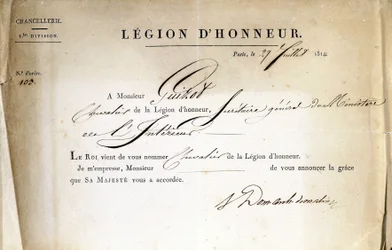 CHANCELLERIE.
1re DIVISION.
LÉGION D'HONNEUR.
Paris, le 27 Juillet 1814
N.º d'ordre.
103
A Monsieur Guizot
Chevalier de la Légion d'honneur, Secrétaire général du Ministère
de l'Intérieur
LE ROI vient de vous nommer Chevalier de la Légion d'honneur.
Je m'empresse, Monsieur de vous annoncer la grâce
que SA MAJESTÉ vous a accordée.